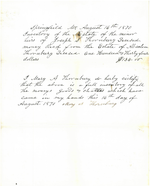 Springfield Mo August 16th 1870
Inventory of the Estate of the minor
heirs of Joseph J. Thornburg Deceased
money Recd from the Estate of
Thornburg Deceased one Hundred & Thirty Six
dollars $136.00
I Mary A Thornburg do hereby certify
that the above is a full inventory of all
the moneys goods & chattles which have
came in my hands this 16th day of
August 1870 Mary A Thornburg